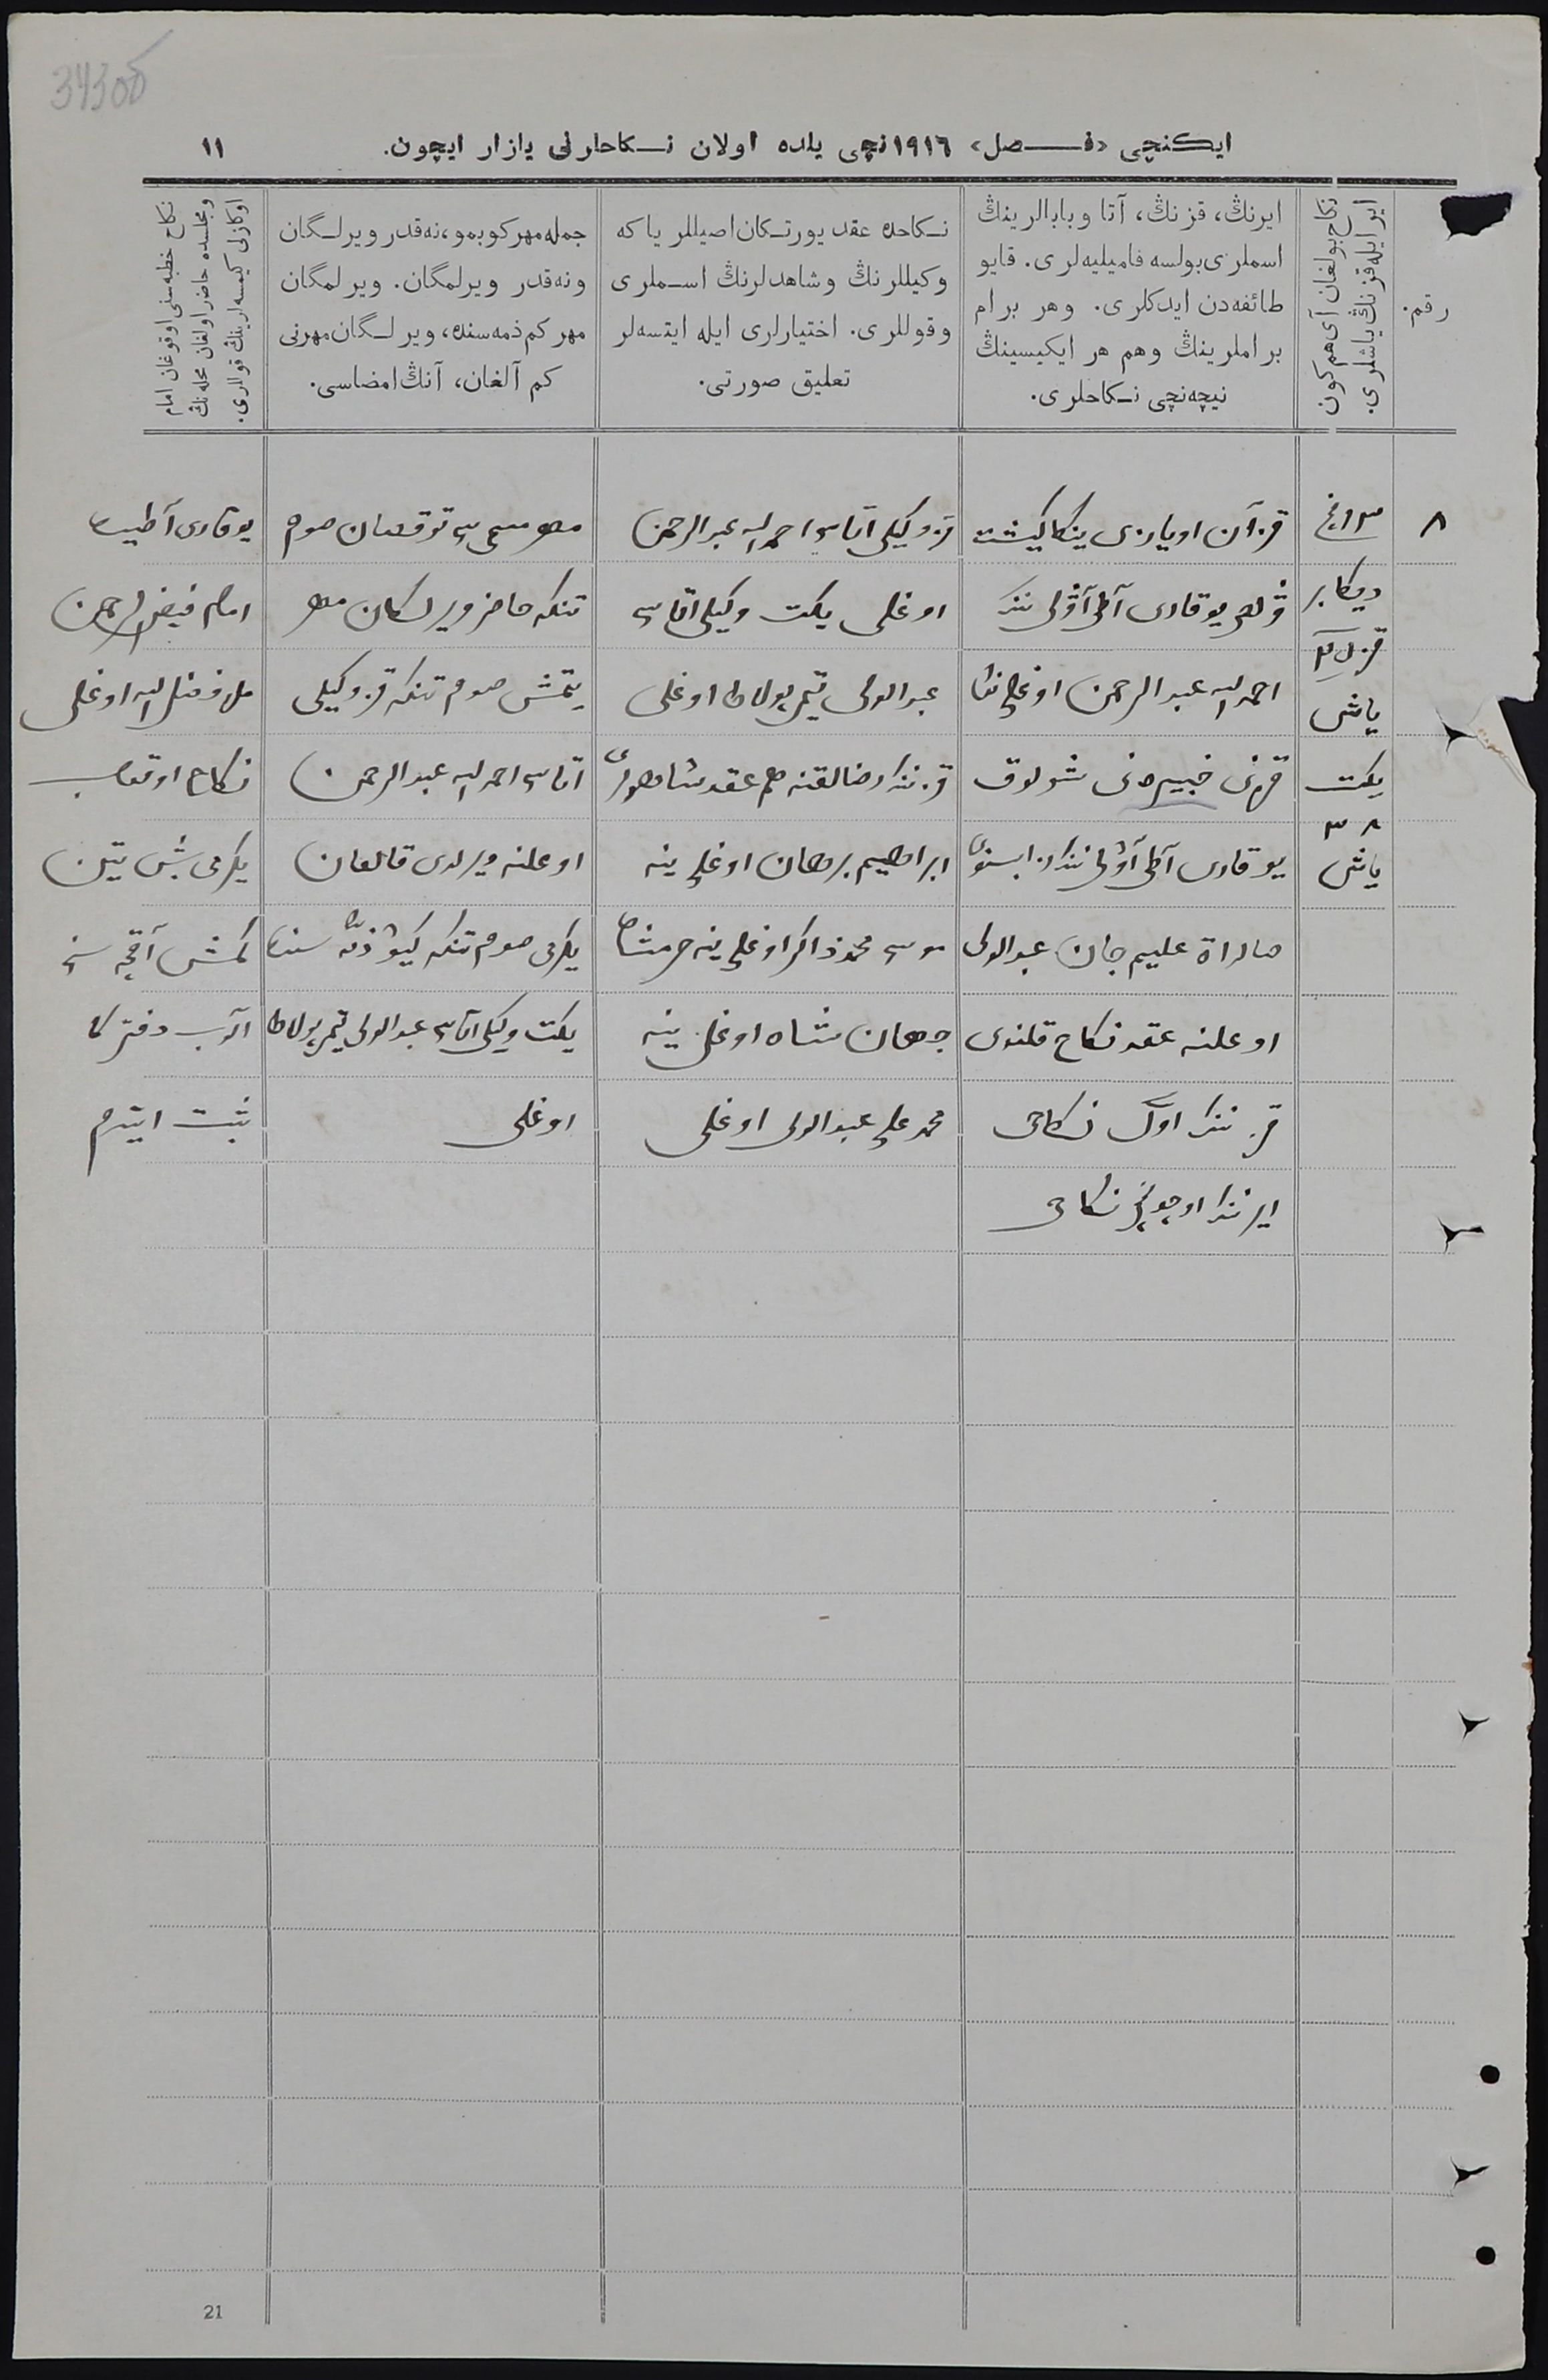 343об
ایكنچی «فـصل» ١٩١٦نچی یلده اولان نـكاحلارنی یازار ایچون.
١١
رقم.
نكاح بولغان آی هم كون
ایر ایله قزنڭ یاشلری.
ایرنڭ، قزنڭ، آتا و بابالرینڭ
اسملری بولسه فامیلیه‌لری. قایو
طائفه‌دن ایدكلری. وهر برام
براملرینڭ وهم هر ایكیسینڭ
نیچه‌نچی نـكاحلری.
نـكاحده عقد یورتـكان اصیللر یا كه
وكیللرنڭ وشاهدلرنڭ اسـملری
وقوللری. اختیارلری ایله ایتسه‌لر
تعلیق صورتی.
جمله مهر كوبمو، نه‌قدر ویرلـگان
ونه‌قدر ویرلمگان. ویرلمگان
مهر كم ذمه‌سنده، ویرلـگان مهرنی
كم آلغان، آنڭ امضاسی.
نكاح خطبه‌سنی اوقوغان امام
ومجلسده حاضر اولغان محله‌نڭ
اوكازلی كیمسه‌لرینڭ قوللری.
٨
١٣نچی
دیكابر
قز
یاش
یكت
٣٨
یاش
قزآن اویازی
یوقاری آطی آولی ننڭ
احمدالله عبدالرحمن اوغلی
قزی
یوقاری آطی آولی ننڭ
علیم جان عبدالولی
اوغلنه عقد نكاح قلندی
قز ننڭ اوّل نكاحی
ایر ننڭ اوچونچی نكاحی
قز وكیلی آتاسی احمدالله عبدالرحمن
اوغلی یكت وكیلی آتاسی
عبدالولی تیمربولاط اوغلی
قز ننڭ رضالقنه هم عقد شاهدلری
ابراهیم برهان اوغلی ینه
موسی محمدذاكر اوغلی ینه
جهان شاه اوغلی ینه
محمد علی عبدالولی اوغلی
مهر مسمی سی توقسان صوم
تنكه حاضر ویرلكان مهر
یتمش صوم تنكه قز وكیلی
آتاسی احمدالله عبدالرحمن
اوغلنه ویرلدی قالغان
یكرمی صوم تنكه كیو ذمّه سنده
یكت وكیلی آتاسی عبدالولی تیمربولاط
اوغلی
یوقاری آطی
امام فیض الرحمن
ملا فضل الله اوغلی
نكاح اوقوب
یكرمی بش تین
كمش آقچه سن
آلوب دفتركا
ثبت ایتدم
21